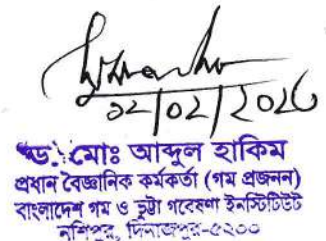 ১২/০২/২০২৬
ড. মোঃ আব্দুল হাকিম
প্রধান বৈজ্ঞানিক কর্মকর্তা (গম প্রজনন)
বাংলাদেশ গম ও ভুট্টা গবেষণা ইনস্টিটিউট
নশিপুর, দিনাজপুর-৫২০০